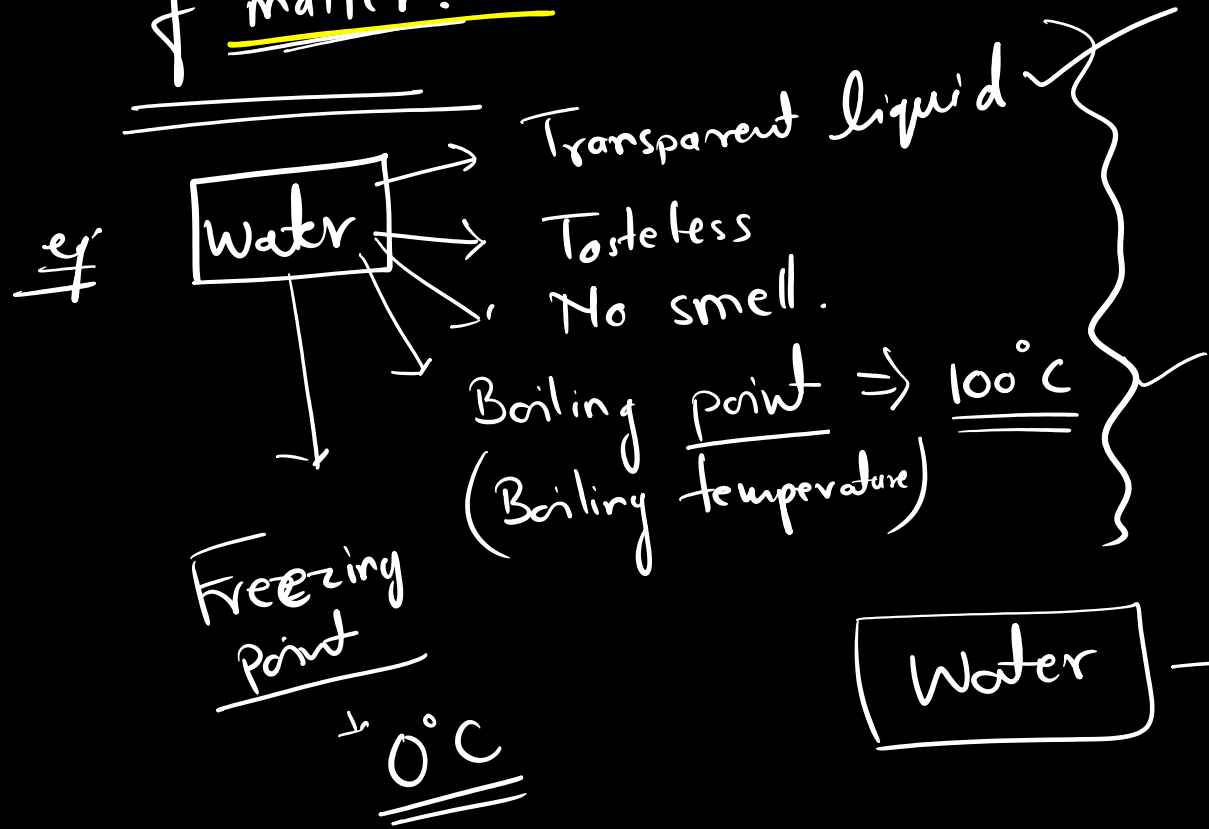 matter.
Transparent liquid
eg Water
Tasteless
No smell.
Boiling point ⇒ 100°C
(Boiling temperature)
Freezing
point
0°C
Water